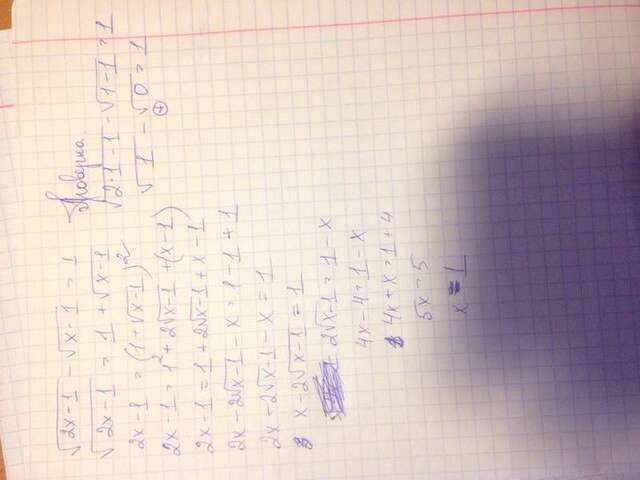 √2x-1 - √x-1 = 1
√2x-1 = 1 + √x-1
2x-1 = (1+√x-1)²
2x-1 = 1² + 2√x-1 + (x-1)
2x-1 = 1 + 2√x-1 + x - 1
2x - 2√x-1 - x = 1 - 1 + 1
2x - 2√x-1 - x = 1
x - 2√x-1 = 1
- 2√x-1 = 1 - x
4x - 4 = 1 - x
4x + x = 1 + 4
5x = 5
x = 1
Проверка
√2·1-1 - √1-1 = 1
√1 - √0 = 1
⊕